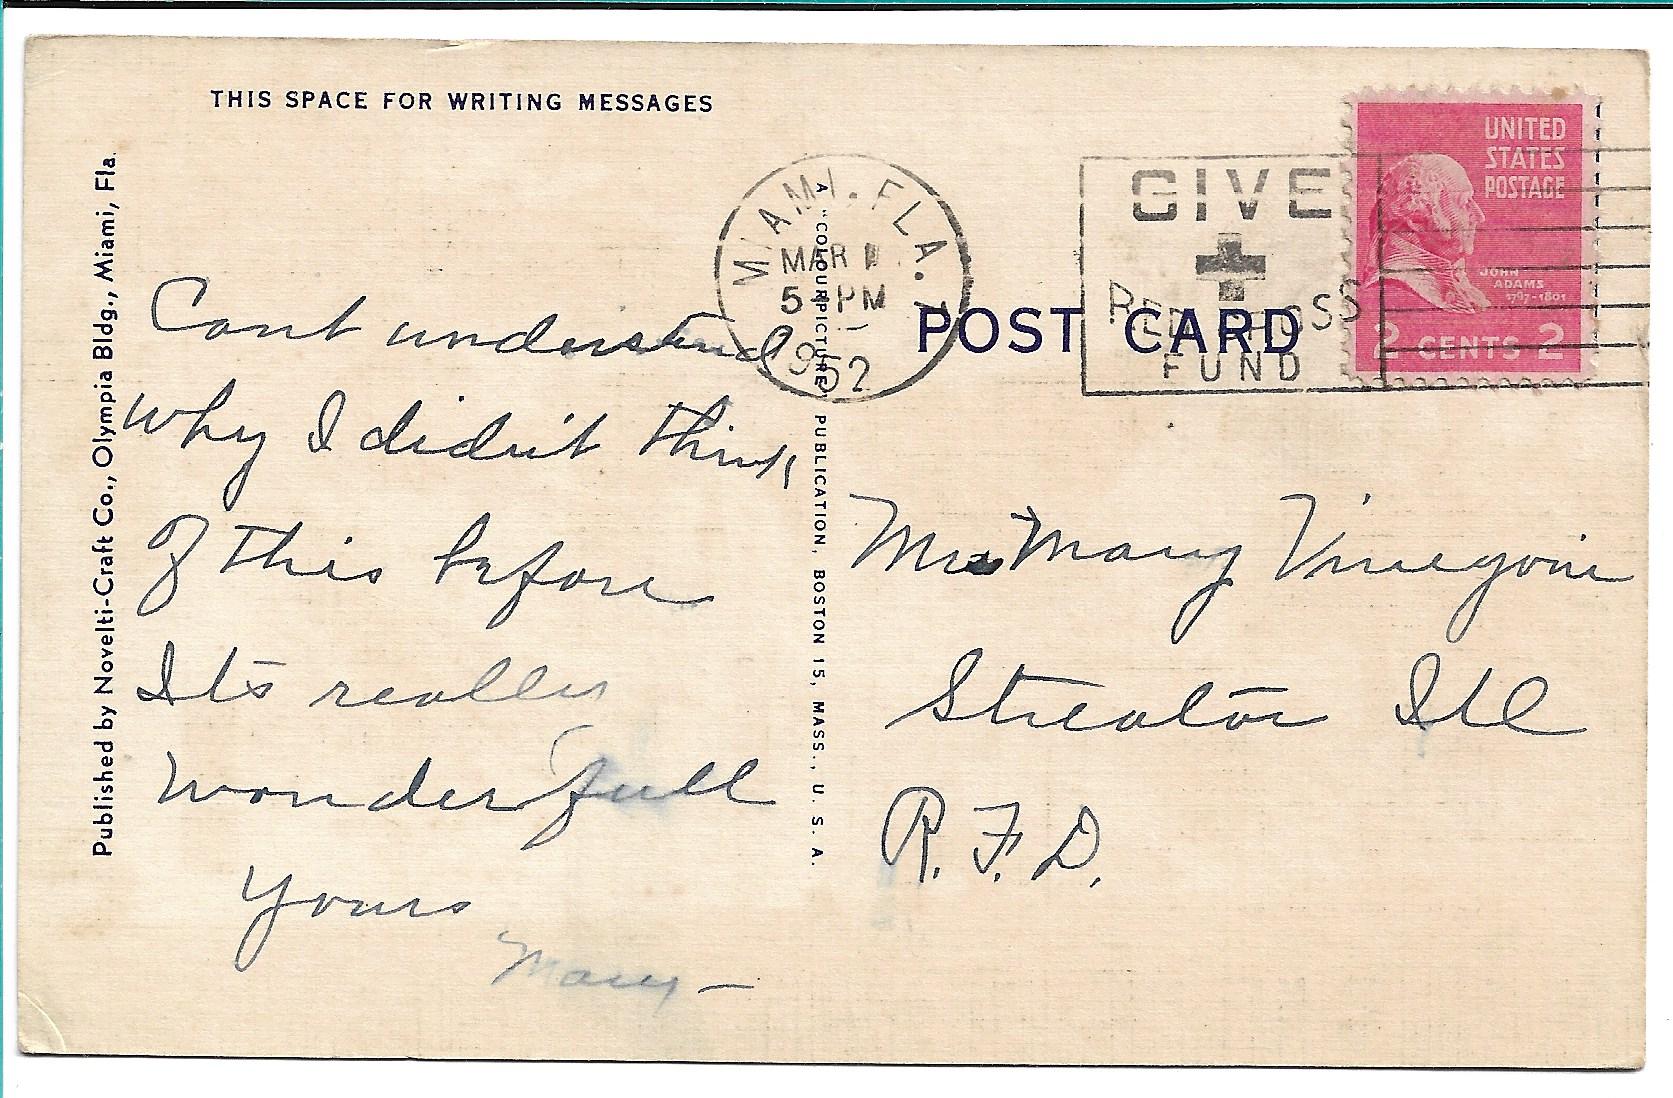 THIS SPACE FOR WRITING MESSAGES
Published by Novelti-Craft Co., Olympia Bldg., Miami, Fla.
Cant understand
why I didn't think
of this before
Its really
wonderfull
Yours
Mary –
A "COLOURPICTURE" PUBLICATION, BOSTON 15, MASS., U. S. A.
MIAMI, FLA.
MAR
5 PM
1952
GIVE
RED CROSS
FUND
UNITED
STATES
POSTAGE
JOHN
ADAMS
1797-1801
2 CENTS 2
POST CARD
Mrs Mary
Streator Ill
R.F.D.